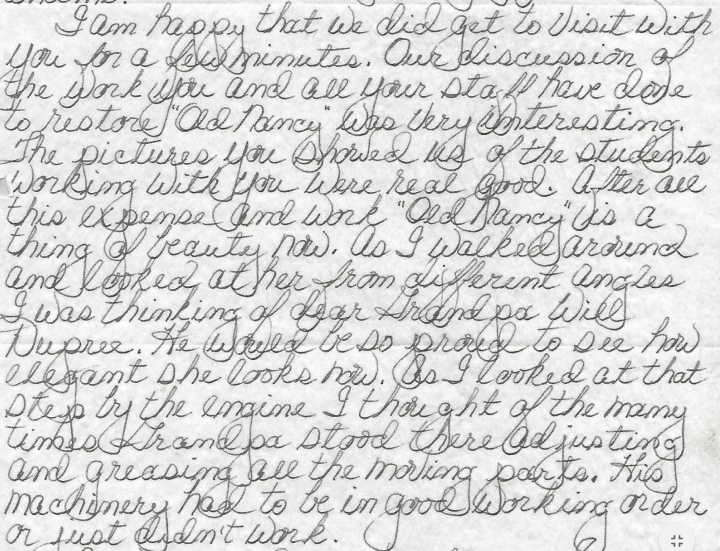 I am happy that we did get to visit with
you for a few minutes. Our discussion of
the work you and all your staff have done
to restore "Old Nancy" was very interesting.
The pictures you showed us of the students
working with you were real good. After all
this expense and work "Old Nancy" is a
thing of beauty now. As I walked around
and looked at her from different angles
I was thinking of dear Grandpa Will
Dupree. He would be so proud to see how
elegant she looks now. As I looked at that
step by the engine I thought of the many
times Grandpa stood there adjusting
and greasing all the moving parts. His
machinery had to be in good working order
or just didn't work.